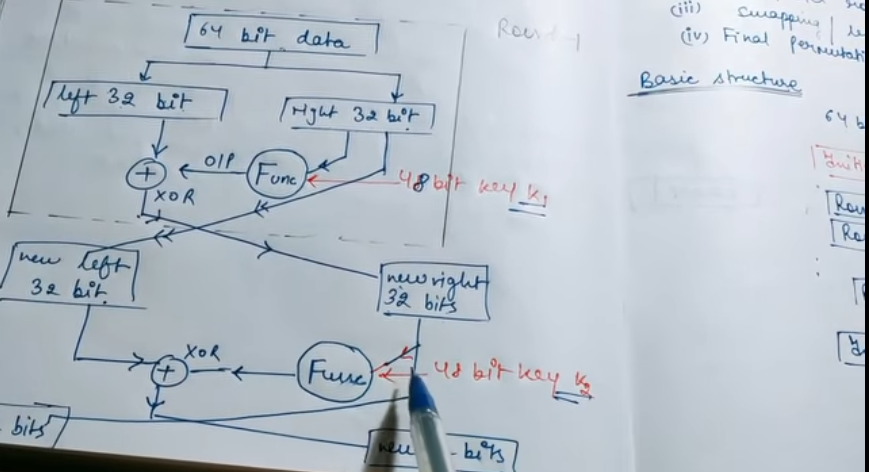 64 bit data
Round-1
left 32 bit
right 32 bit
O/P
Func
+
XOR
48 bit key K1
new left
32 bit
new right
32 bits
XOR
+
Func
48 bit key K2
bits
new
bits
(iii) swapping
(iv) Final Permutati
Basic structure
64 b
Initi
Rou
Ro